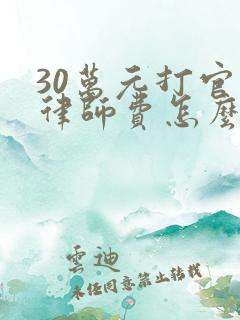 30萬元打官
律師費怎麼
雲迪
未經同意禁止轉載